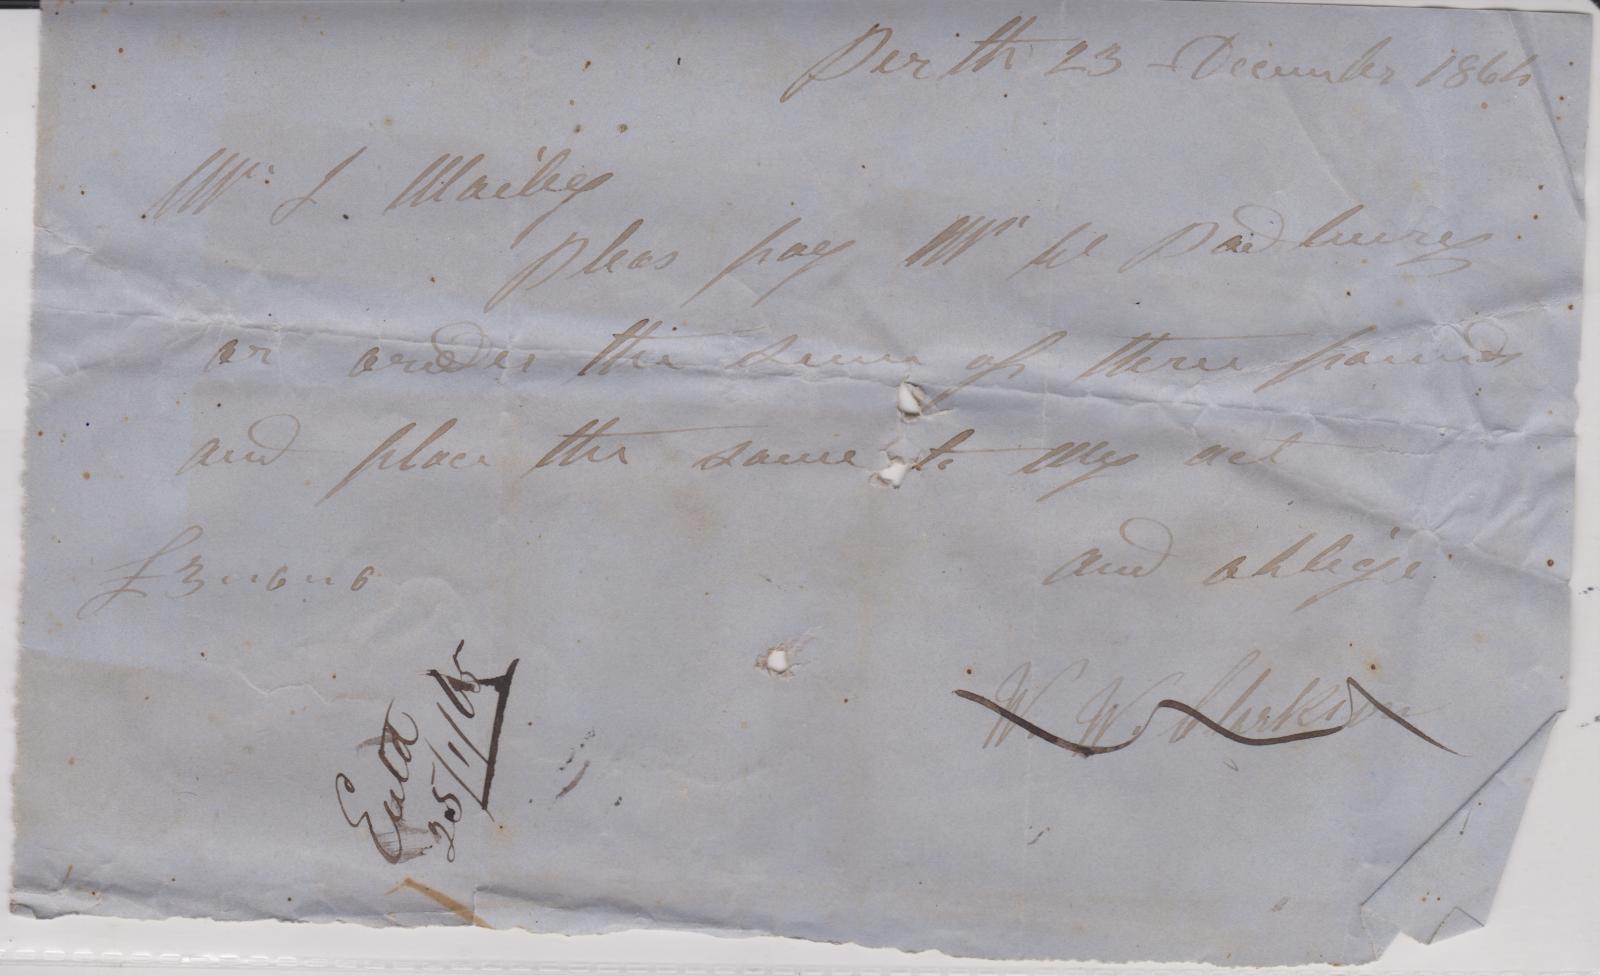 Perth 23 December 1864
Mr. L. Mailey
Pleas pay Mr W Padbury
or order the sum of three pounds
and place the same to my act
£3 " 0 " 0
and oblige
W. W.
Entd
25/1/65